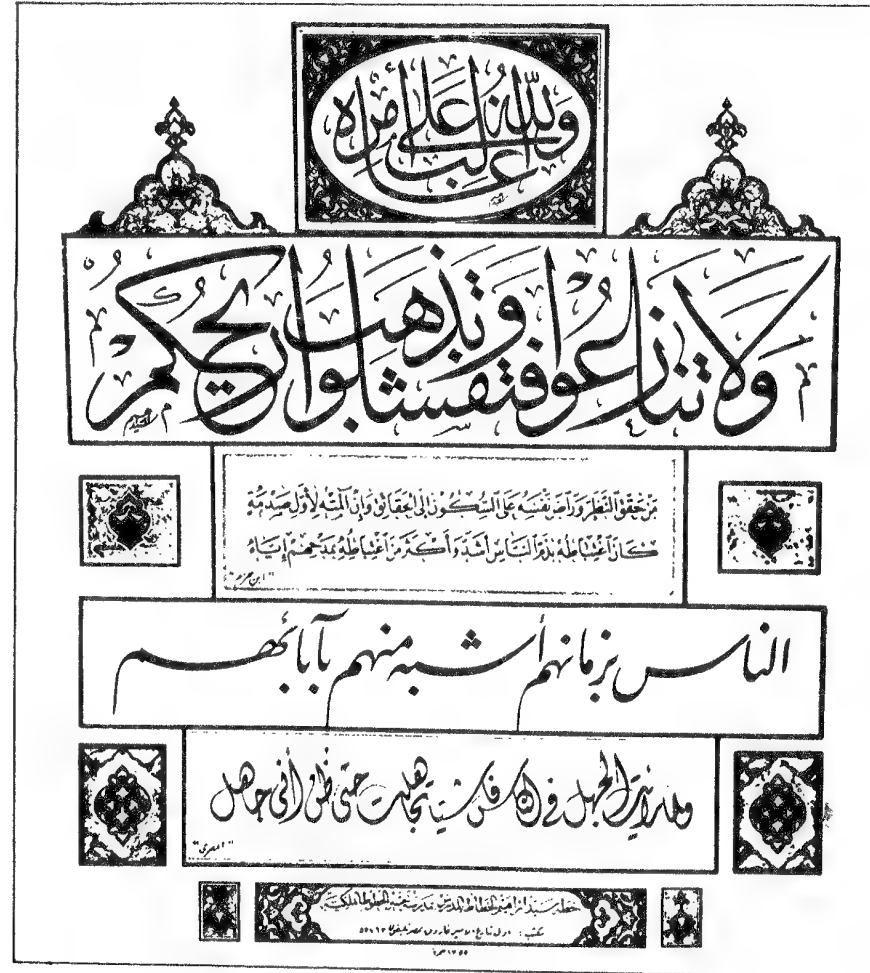 والله غالب على أمره
ولا تنازعوا فتفشلوا وتذهب ريحكم
سيد ابراهيم
من حقق النظر وراض نفسه على السكون الى الحقائق وإن آلمته لأول صدمة
كان اغتباطه بذم الناس أشد وأكثر من اغتباطه بمدحهم إياه
"ابن حزم"
الناس بزمانهم أشبه منهم بآبائهم
ولما رأيت الجهل في الناس فاشيا تجاهلت حتى ظن أني جاهل
"المعري"
خطه سيد ابراهيم الخطاط المدرس بمدرسة تحسين الخطوط الملكية
مكتب : اول شارع الامير فاروق بمصر تليفون
١٣٥٥